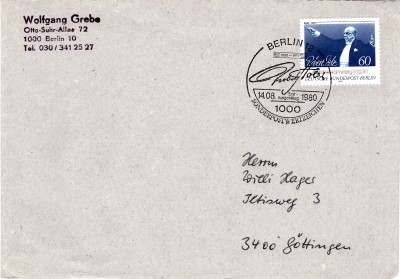 Wolfgang Grebe
Otto-Suhr-Allee 72
1000 Berlin 10
Tel. 030/341 25 27
BERLIN 12
14.08. 1980
1000
SONDERPOSTWERTZEICHEN
Robert Stolz
60
DEUTSCHE BUNDESPOST BERLIN
Herrn
Willi Hager
Iltisweg 3
3400 Göttingen